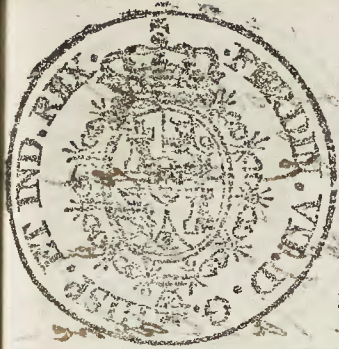 FERDIN · VII · D · G · HISP · ET IND · REX ·